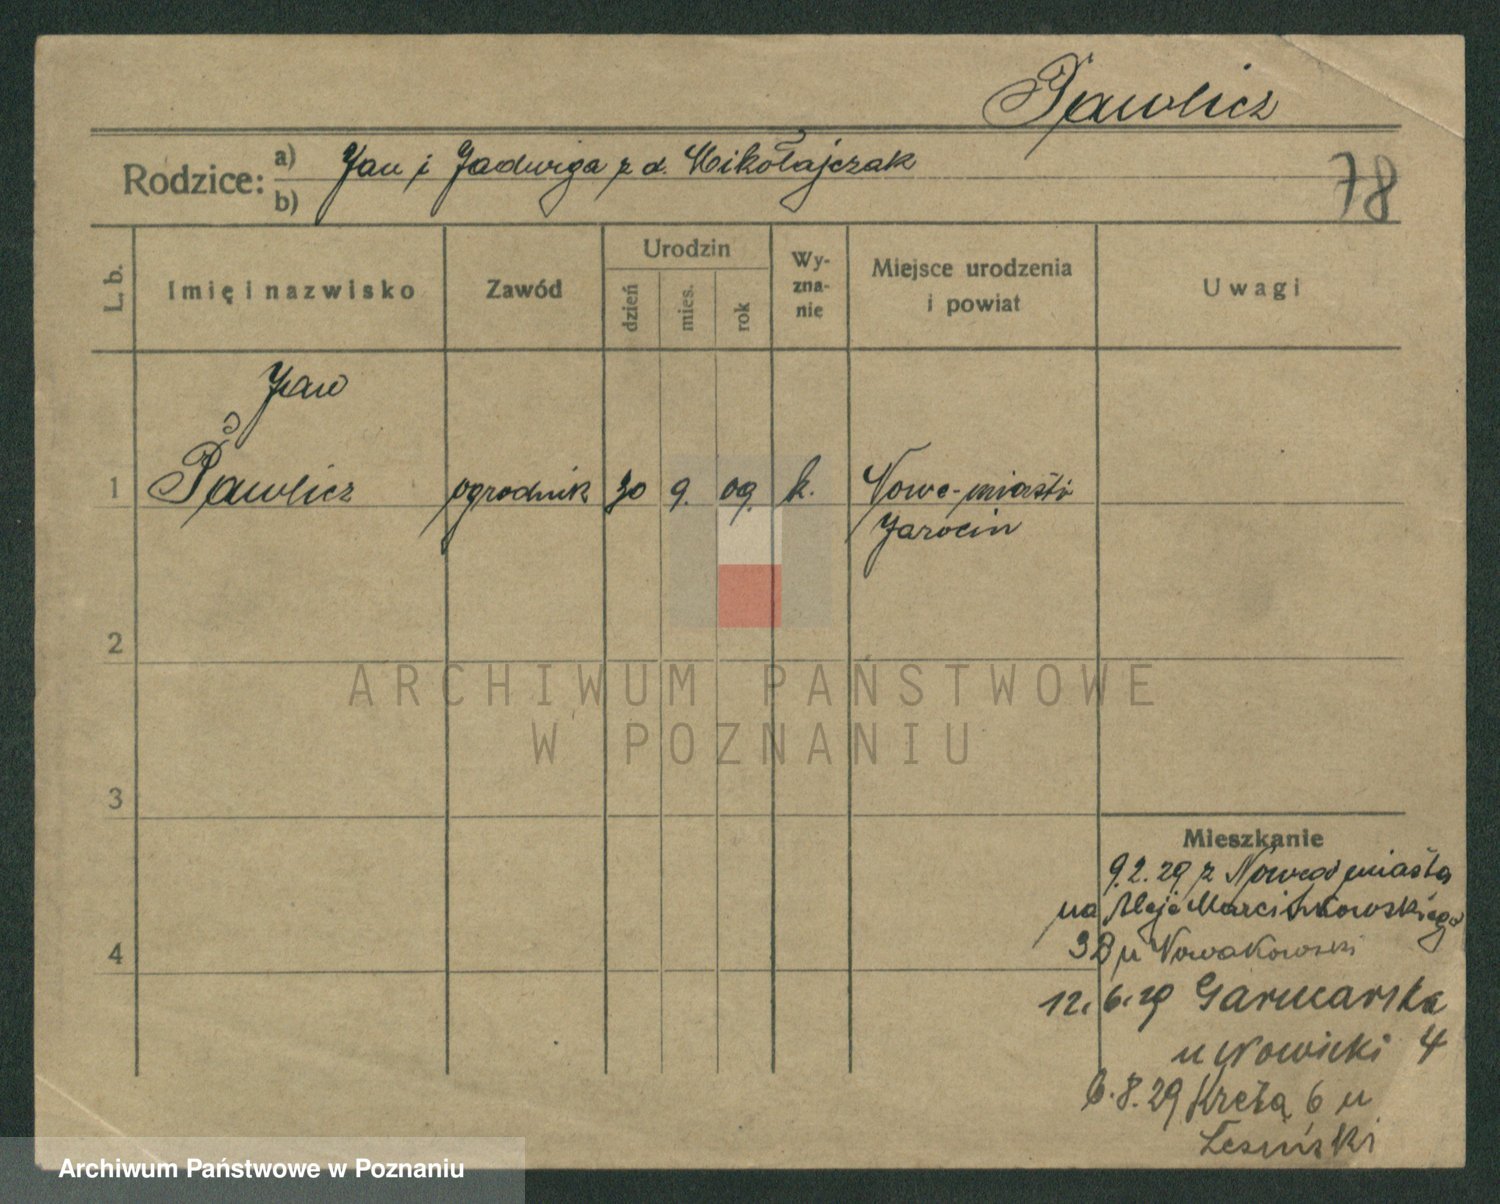 Pawlicz
Rodzice: a) Jan i Jadwiga z d. Mikołajczak
b)
78
L. b.
Imię i nazwisko
Zawód
Urodzin
dzień
mies.
rok
Wy-
zna-
nie
Miejsce urodzenia
i powiat
Uwagi
Jan
1 Pawlicz ogrodnik 30 9. 09. k. Nowe-miasto
Jarocin
2
3
4
ARCHIWUM PAŃSTWOWE
W POZNANIU
Mieszkanie
9.2.29 z Nowego miasta
na Aleje Marcinkowskiego
3B u Nowakowski
12.6.29 Garncarska
u Nowicki 4
6.8.29 Kręta 6 u
Lesiński
Archiwum Państwowe w Poznaniu